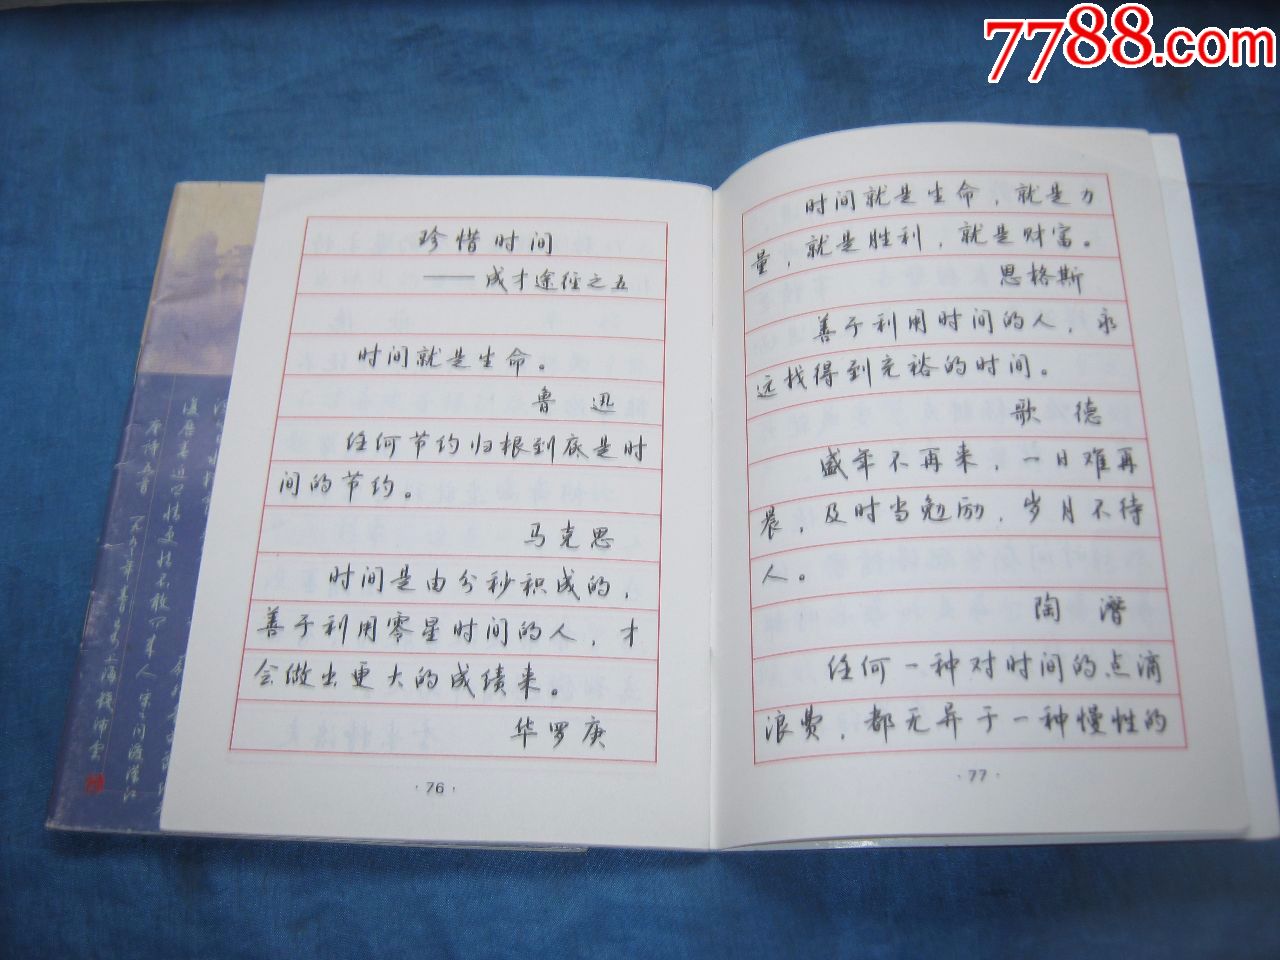 7788.com
珍惜时间
——成才途径之五
时间就是生命。
鲁迅
任何节约归根到底是时
间的节约。
马克思
时间是由分秒积成的，
善于利用零星时间的人，才
会做出更大的成绩来。
华罗庚
·76·
时间就是生命，就是力
量，就是胜利，就是财富。
恩格斯
善于利用时间的人，永
远找得到充裕的时间。
歌德
盛年不再来，一日难再
晨，及时当勉励，岁月不待
人。
陶潜
任何一种对时间的点滴
浪费，都无异于一种慢性的
·77·
复历春近乡情更怯不敢问来人宋之问渡汉江
唐诗五首